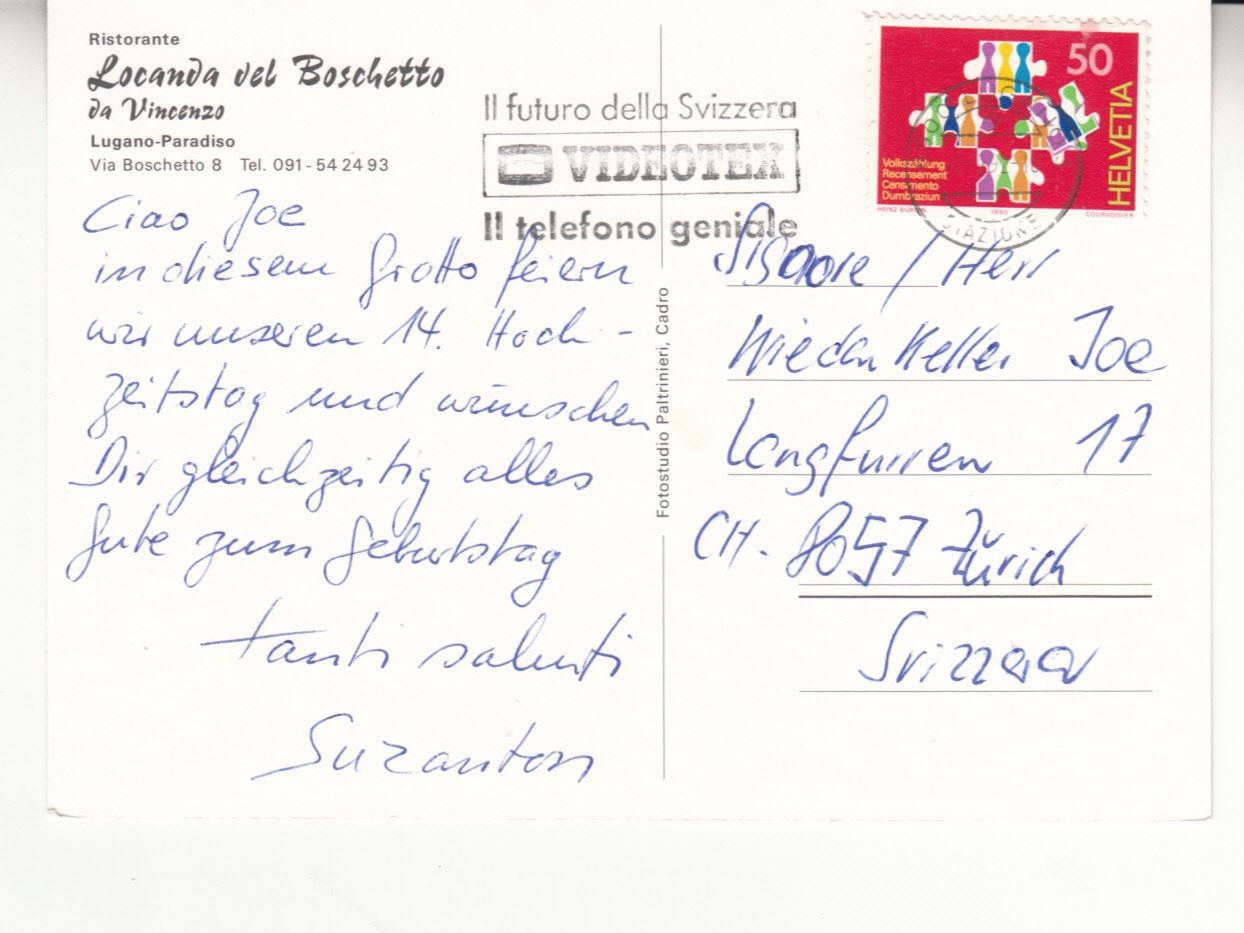 Ristorante
Locanda del Boschetto
da Vincenzo
Lugano-Paradiso
Via Boschetto 8 Tel. 091-54 24 93
Ciao Joe
in diesem Grotto feiern
wir unseren 14. Hoch-
zeitstag und wünschen
Dir gleichzeitig alles
Gute zum Geburtstag
tanti saluti
Suzanton
Il futuro della Svizzera
VIDEOTEX
Il telefono geniale
Fotostudio Paltrinieri, Cadro
50
HELVETIA
Volkszählung
Recensement
Censimento
Dumbraziun
HEINZ 1990 COURVOISIER
STAZIONE
Signore / Herr
Wiederkeller Joe
Langfurren 17
CH-8057 Zürich
Svizzera